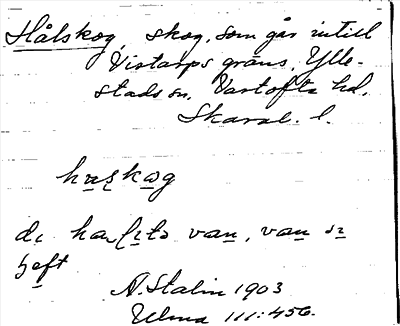 Hålskog, skog, som går intill
Vistorps gräns, Ylle-
stads sn, Vartofta hd,
Skarab. l.
huskog
di ha
van, van si
heft
A. Stalin 1903
Ulma 111:456.